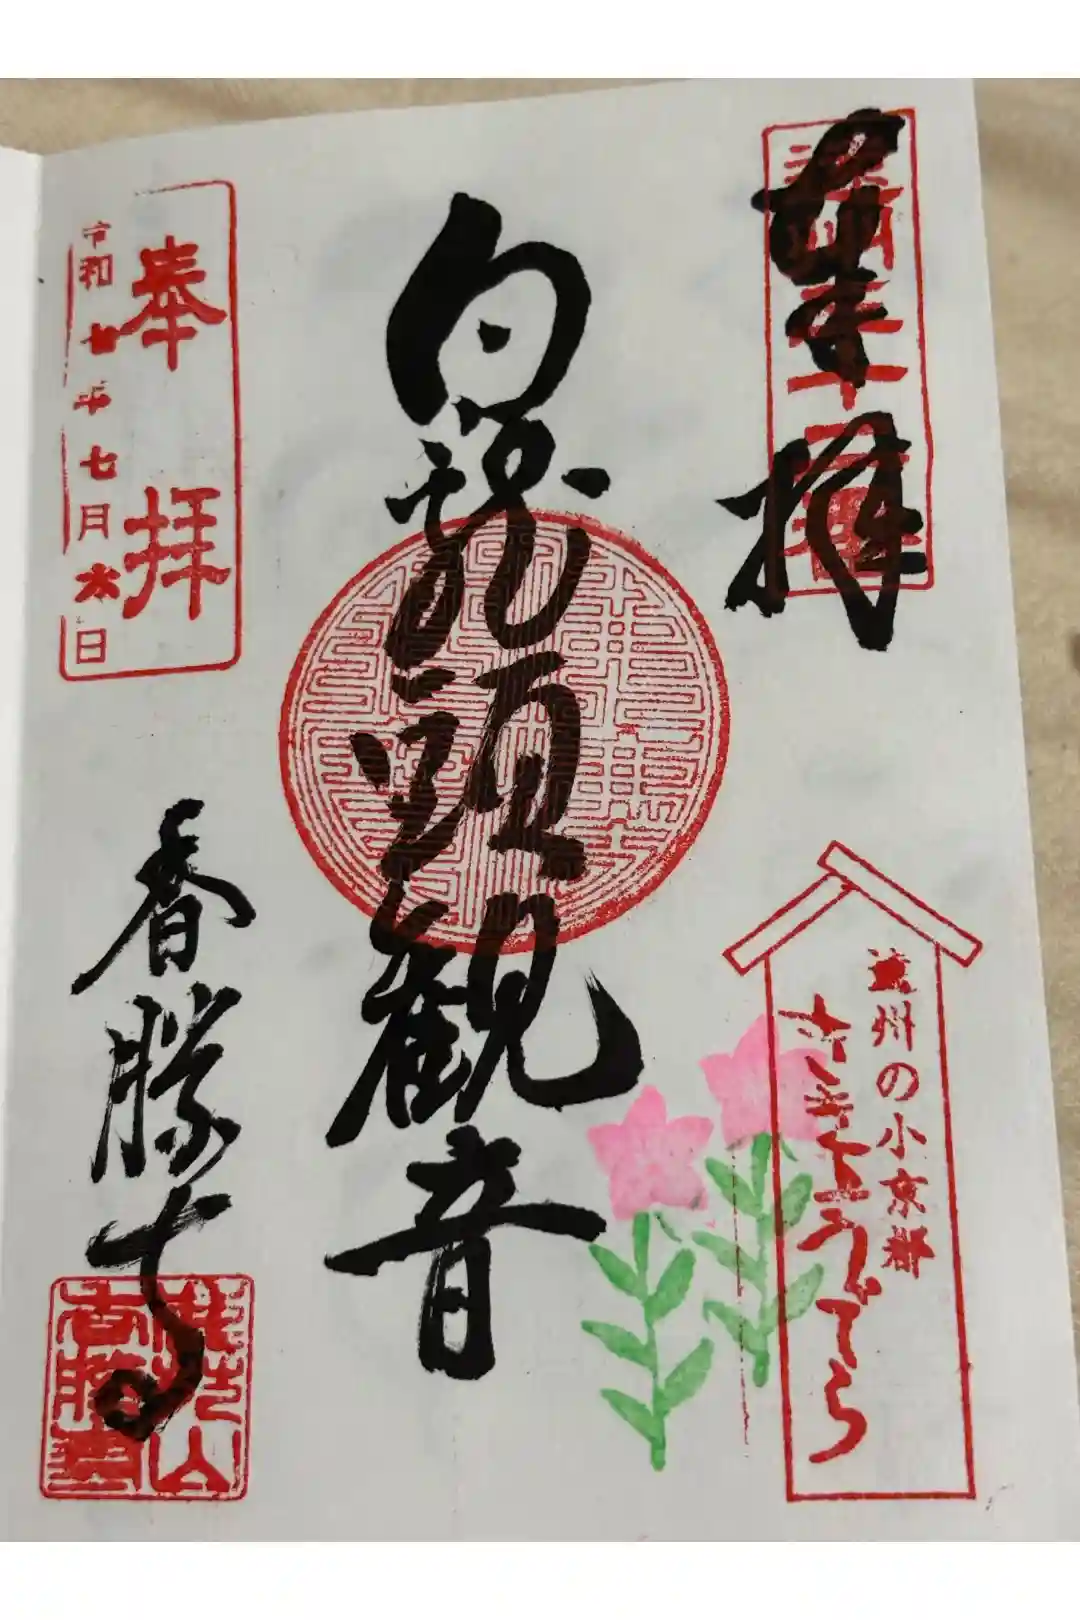 奉拝
遠州の小京都
ききょうでら
白龍頭観音
奉拝
令和七年七月六日
香勝寺